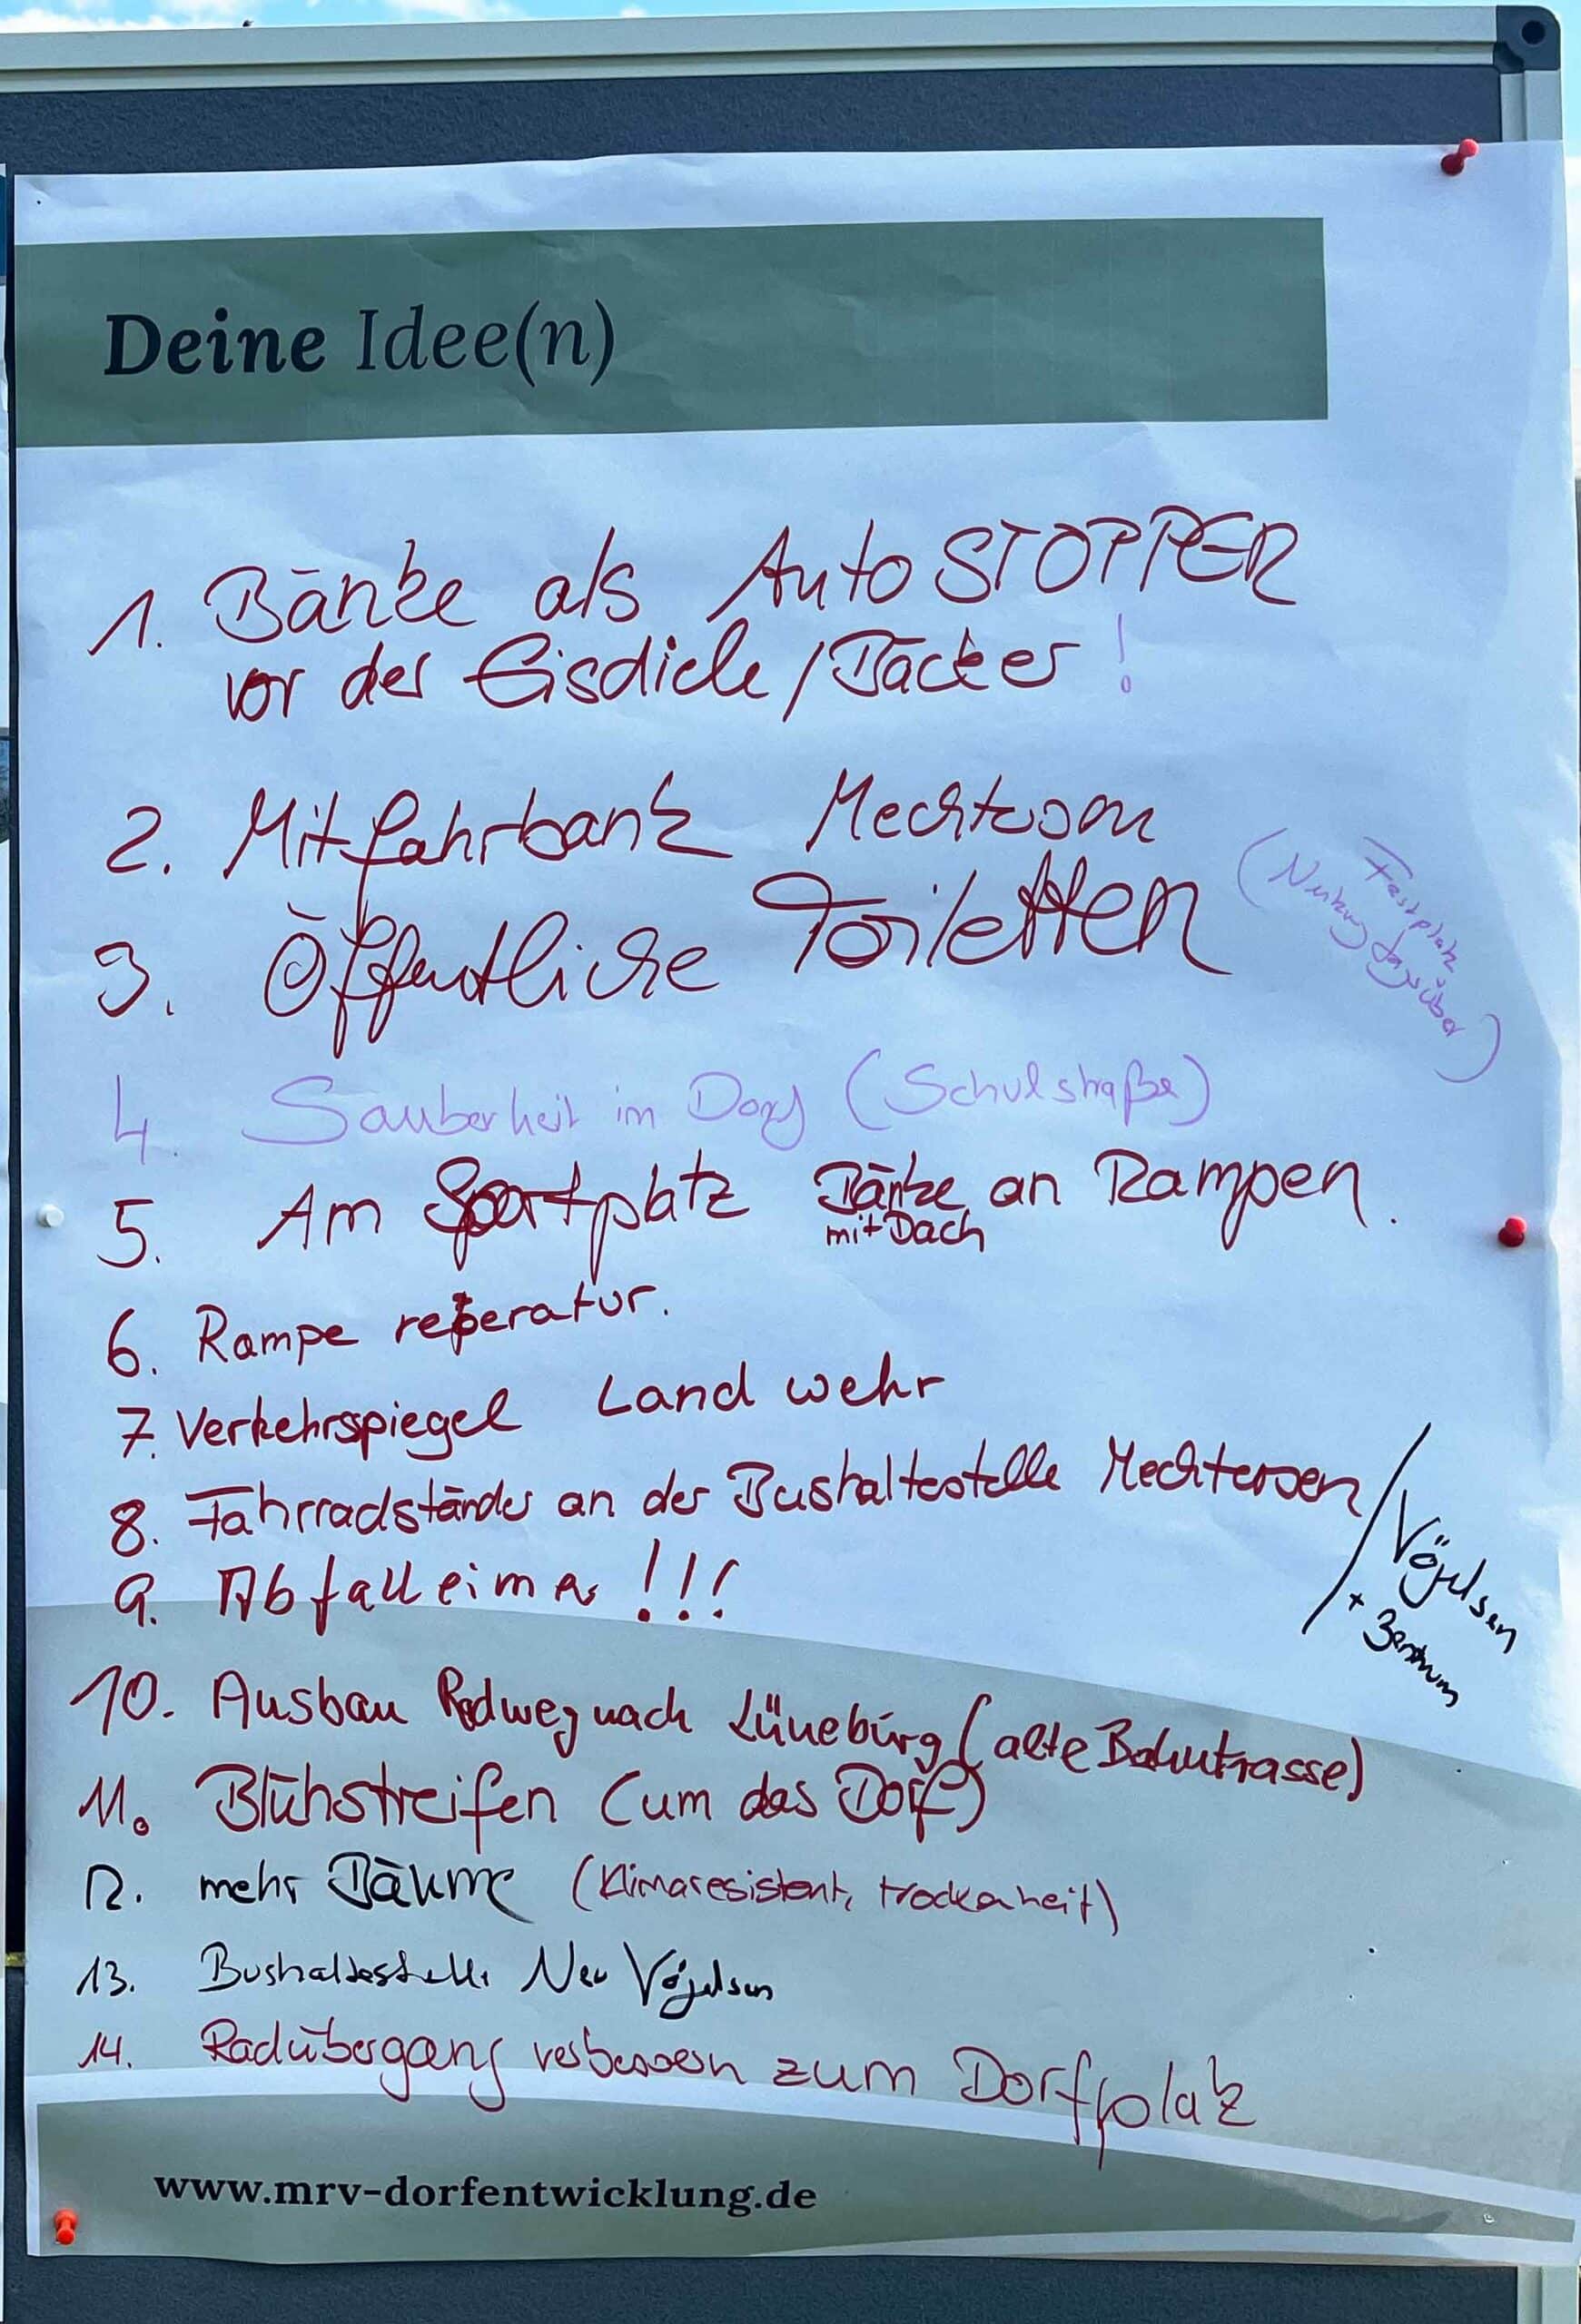 Deine Idee(n)
1. Bänke als AutoSTOPPER
vor der Eisdiele/Bäcker!
2. Mitfahrbank Mechtersen
3. Öffentliche Toiletten
(Festplatz
Nutzung darüber)
4 Sauberheit im Dorf (Schulstraße)
5. Am Sportplatz Bänke an Rampen.
mit Dach
6. Rampe reperatur.
7. Verkehrsspiegel Landwehr
8. Fahrradständer an der Bushaltestelle Mechtersen/Vögelsen
+
9. Abfalleimer !!!
10. Ausbau Radweg nach Lüneburg (alte Bahntrasse)
11. Blühstreifen (um das Dorf)
12. mehr Bäume (Klimaresistent, trockenheit)
13. Bushaltestelle Neu Vögelsen
14. Radübergang verbessern zum Dorfplatz
www.mrv-dorfentwicklung.de